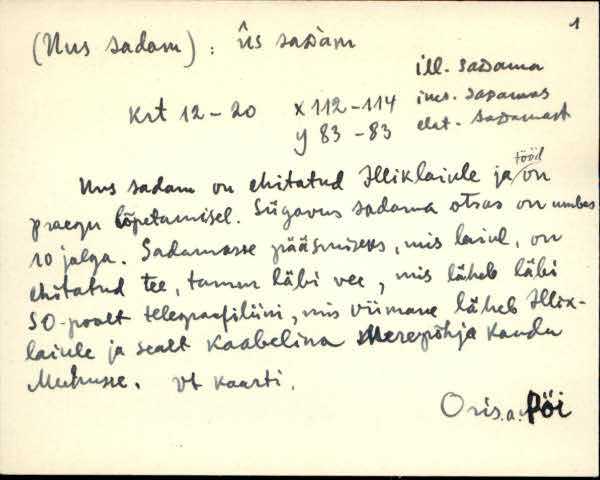 1
(Uus sadam) : ûs saᴅàm
ill. saᴅama
Krt 12-20 x 112-114 ines. saᴅamas
y 83-83 elat. saᴅamast
Uus sadam on ehitatud Illiklaiule ja tööd on
praegu lõpetamisel. Sügavus sadama otsas on umbes
10 jalga. Sadamasse pääsmiseks, mis laiul, on
ehitatud tee, tamm läbi vee, mis läheb läbi
SO-poolt telegraafiliini, mis viimane läheb Illik-
laiule ja sealt kaabelina merepõhja kaudu
Muhusse. Vt kaarti.
Oris.a. Pöi